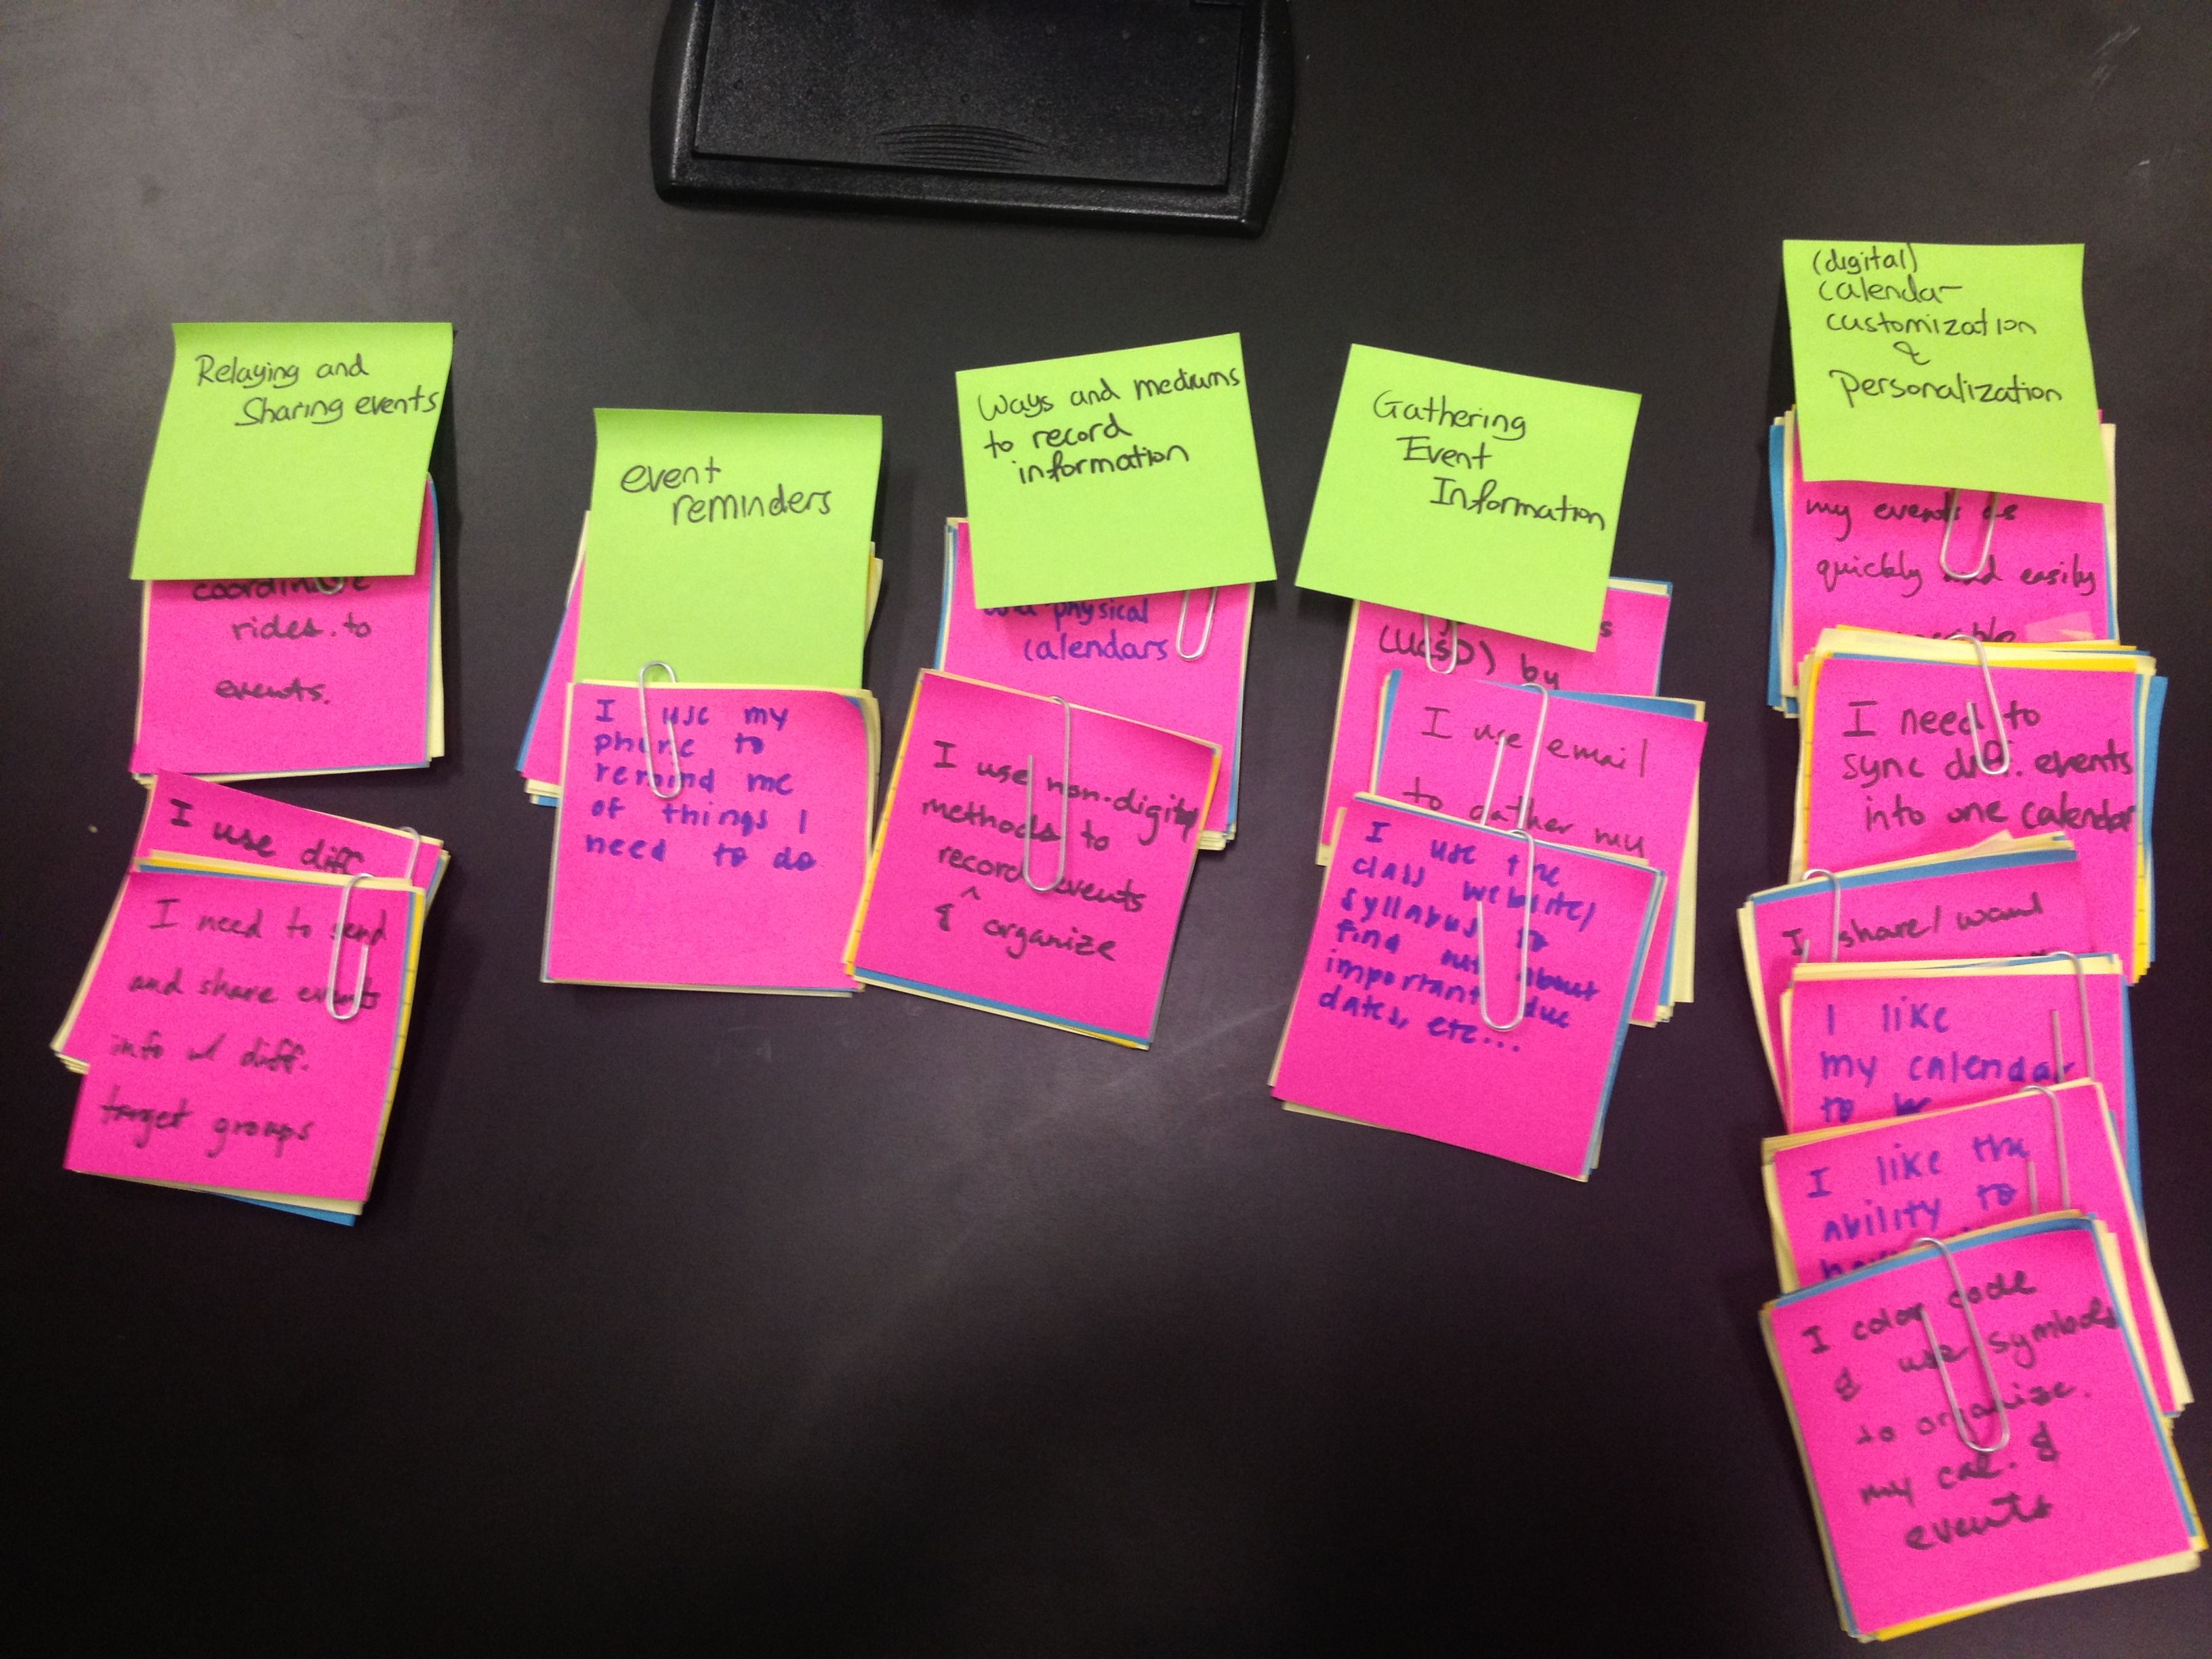 Relaying and
Sharing events
coordinate
rides to
events.
I use diff.
I need to send
and share events
info w/ diff.
target groups
event
reminders
I use my
phone to
remind me
of things I
need to do
Ways and mediums
to record
information
physical
calendars
I use non-digital
methods to
record events
& organize
Gathering
Event
Information
(UCSD) by
I use email
to gather my
I use the
class website/
syllabus to
find out about
important due
dates, etc...
(digital)
calendar
customization
&
personalization
my events as
quickly and easily
I need to
sync diff. events
into one calendar
I share/want
I like
my calendar
to be
I like the
ability to
I color code
& use symbols
to organize
my cal. &
events